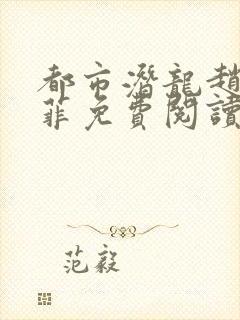 都市潛龍趙
菲免費閱讀
范毅